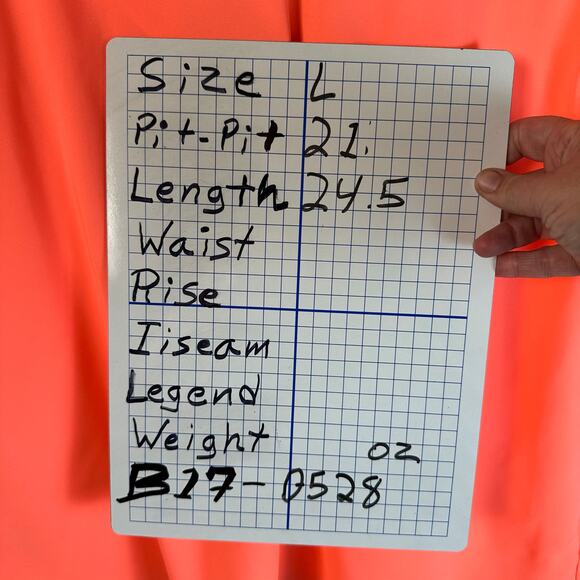 Size L
Pit-Pit 21.
Length 24.5
Waist
Rise
Iiseam
Legend
Weight oz
B17-0528